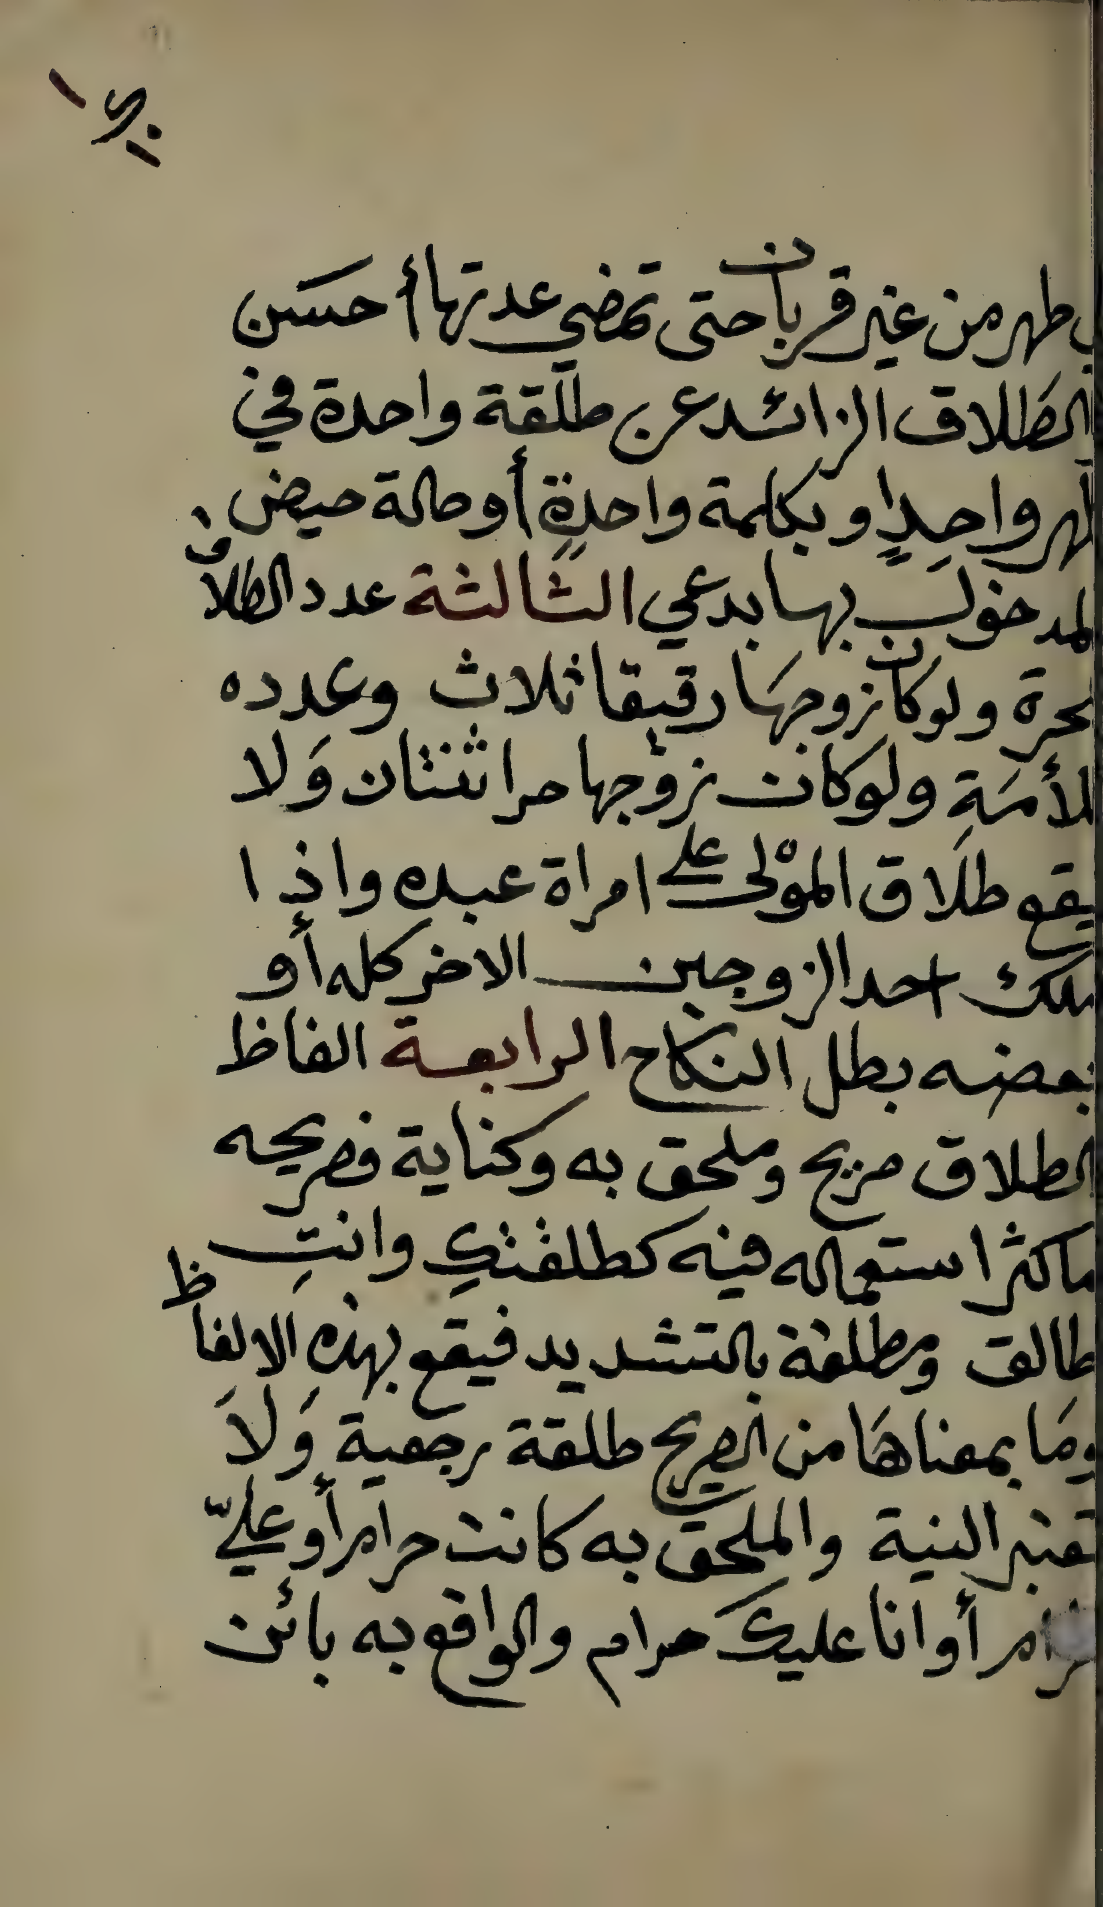 طهر من غير قربان حتى تمضي عدتها أحسن
الطلاق الزائد عن طلقة واحدة في
طهر واحدٍ او بكلمة واحدةٍ أو حالة حيض
لمدخولٍ بها بدعي الثالثة عدد الطلاق
لحرة ولو كان زوجهَا رقيقا ثلاث وعدده
للأمَةِ ولو كان زوجها حرا ثنتان وَلا
يقع طلَاق الموْلى على امراة عبده واذا
ملك احد الزوجين الاخر كله أو
بعضه بطل النكاح الرابعة الفاظ
الطلاق صريح وملحق به وكناية فصريحه
ما كثر استعماله فيه كطلقتكِ وانتِ
طالق ومطلقة بالتشديد فيقع بهذه الالفاظ
ومَا بمعناهَا من الصريح طلقة رجعية وَلَا
تعتبر النية والملحق به كانت حرام أو عليّ
حرام أو انا عليك حرام والواقع به بائن